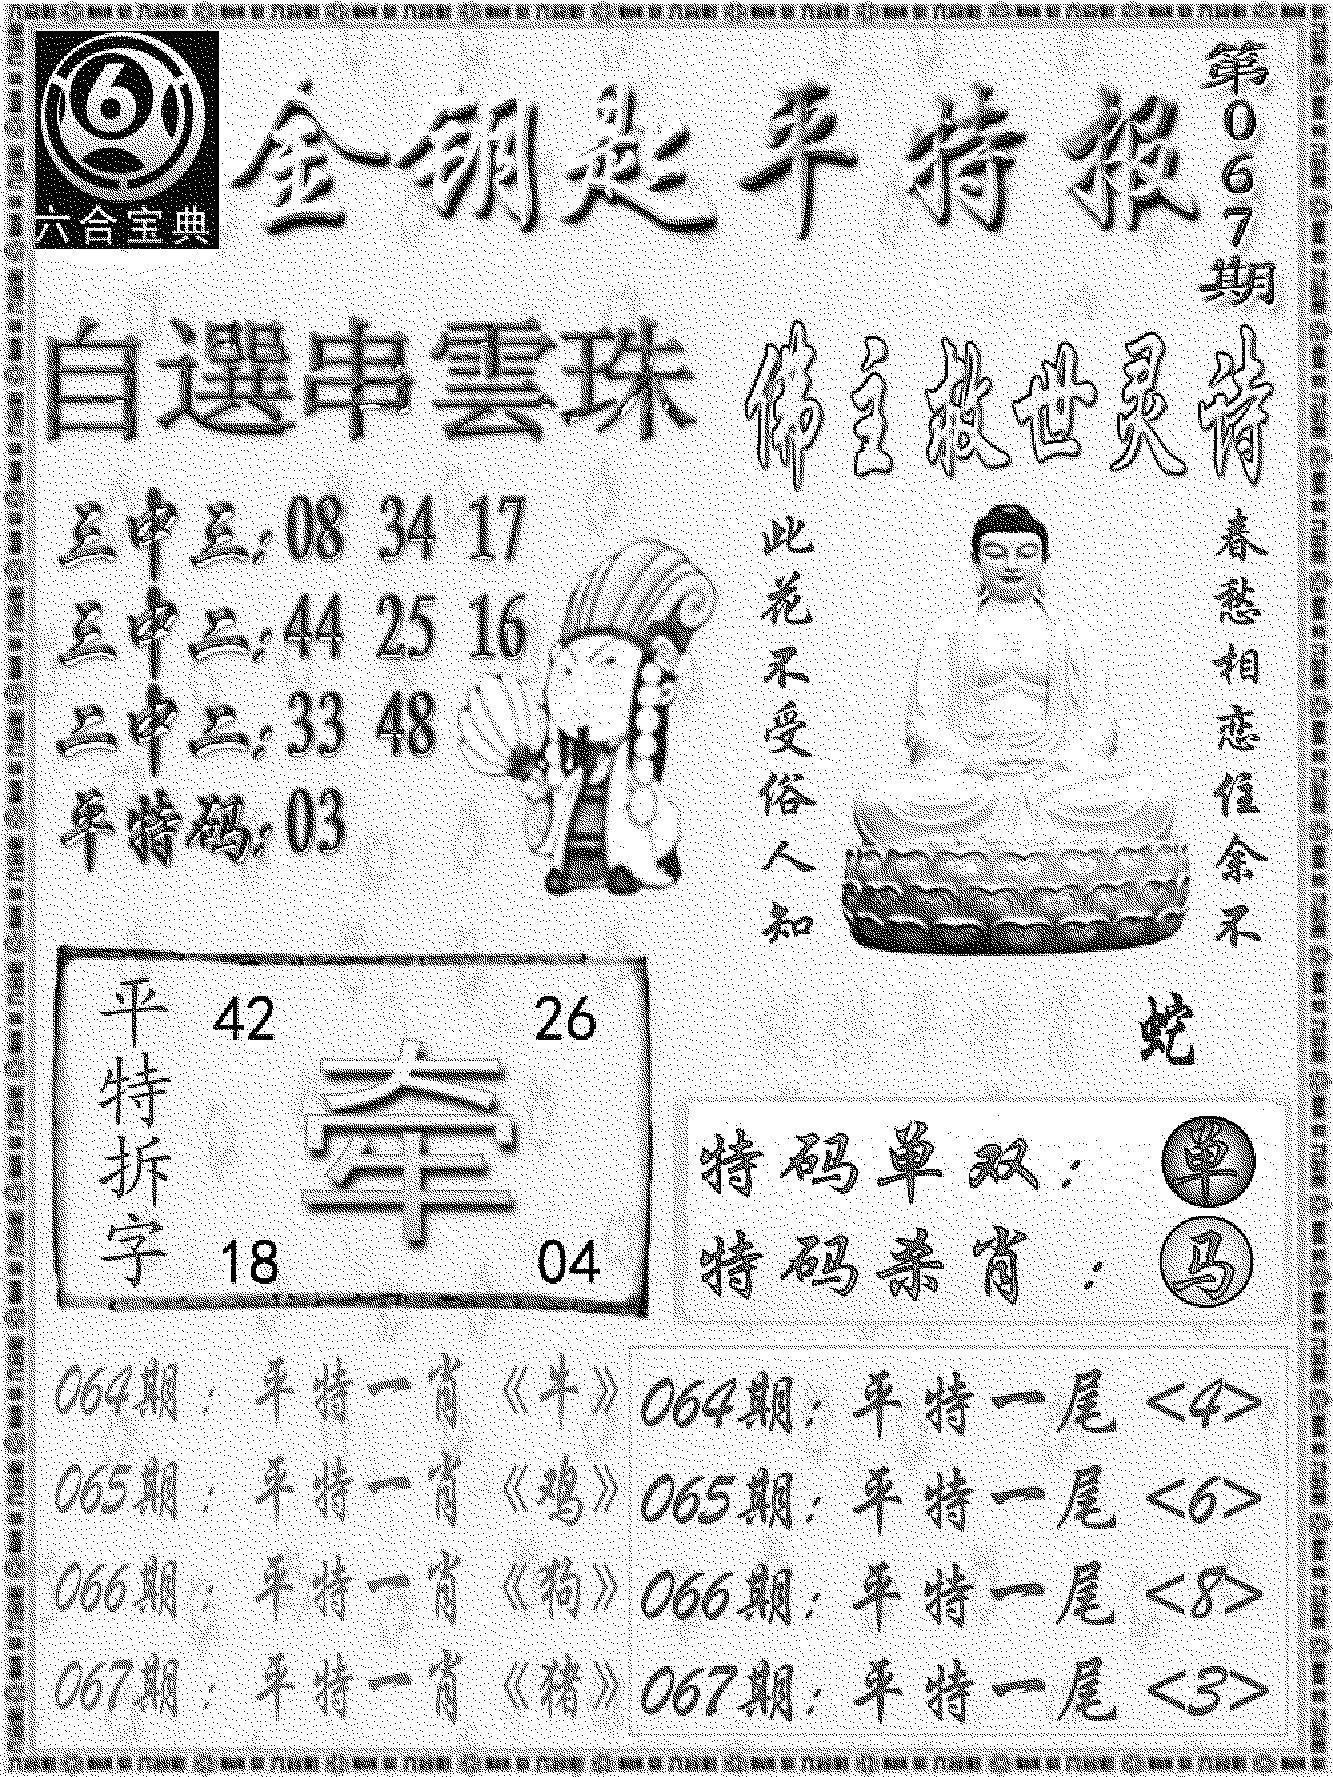 六合宝典
金钥匙平特报
第067期
自選串雲珠
三中三:08 34 17
三中二:44 25 16
二中二:33 48
平特码:03
佛主救世灵诗
春愁相恋住余不
此花不受俗人知
蛇
平特拆字
42 26
牵
18 04
特码单双:单
特码杀肖:马
064期:平特一肖《牛》
065期:平特一肖《鸡》
066期:平特一肖《狗》
067期:平特一肖《猪》
064期:平特一尾<4>
065期:平特一尾<6>
066期:平特一尾<8>
067期:平特一尾<3>